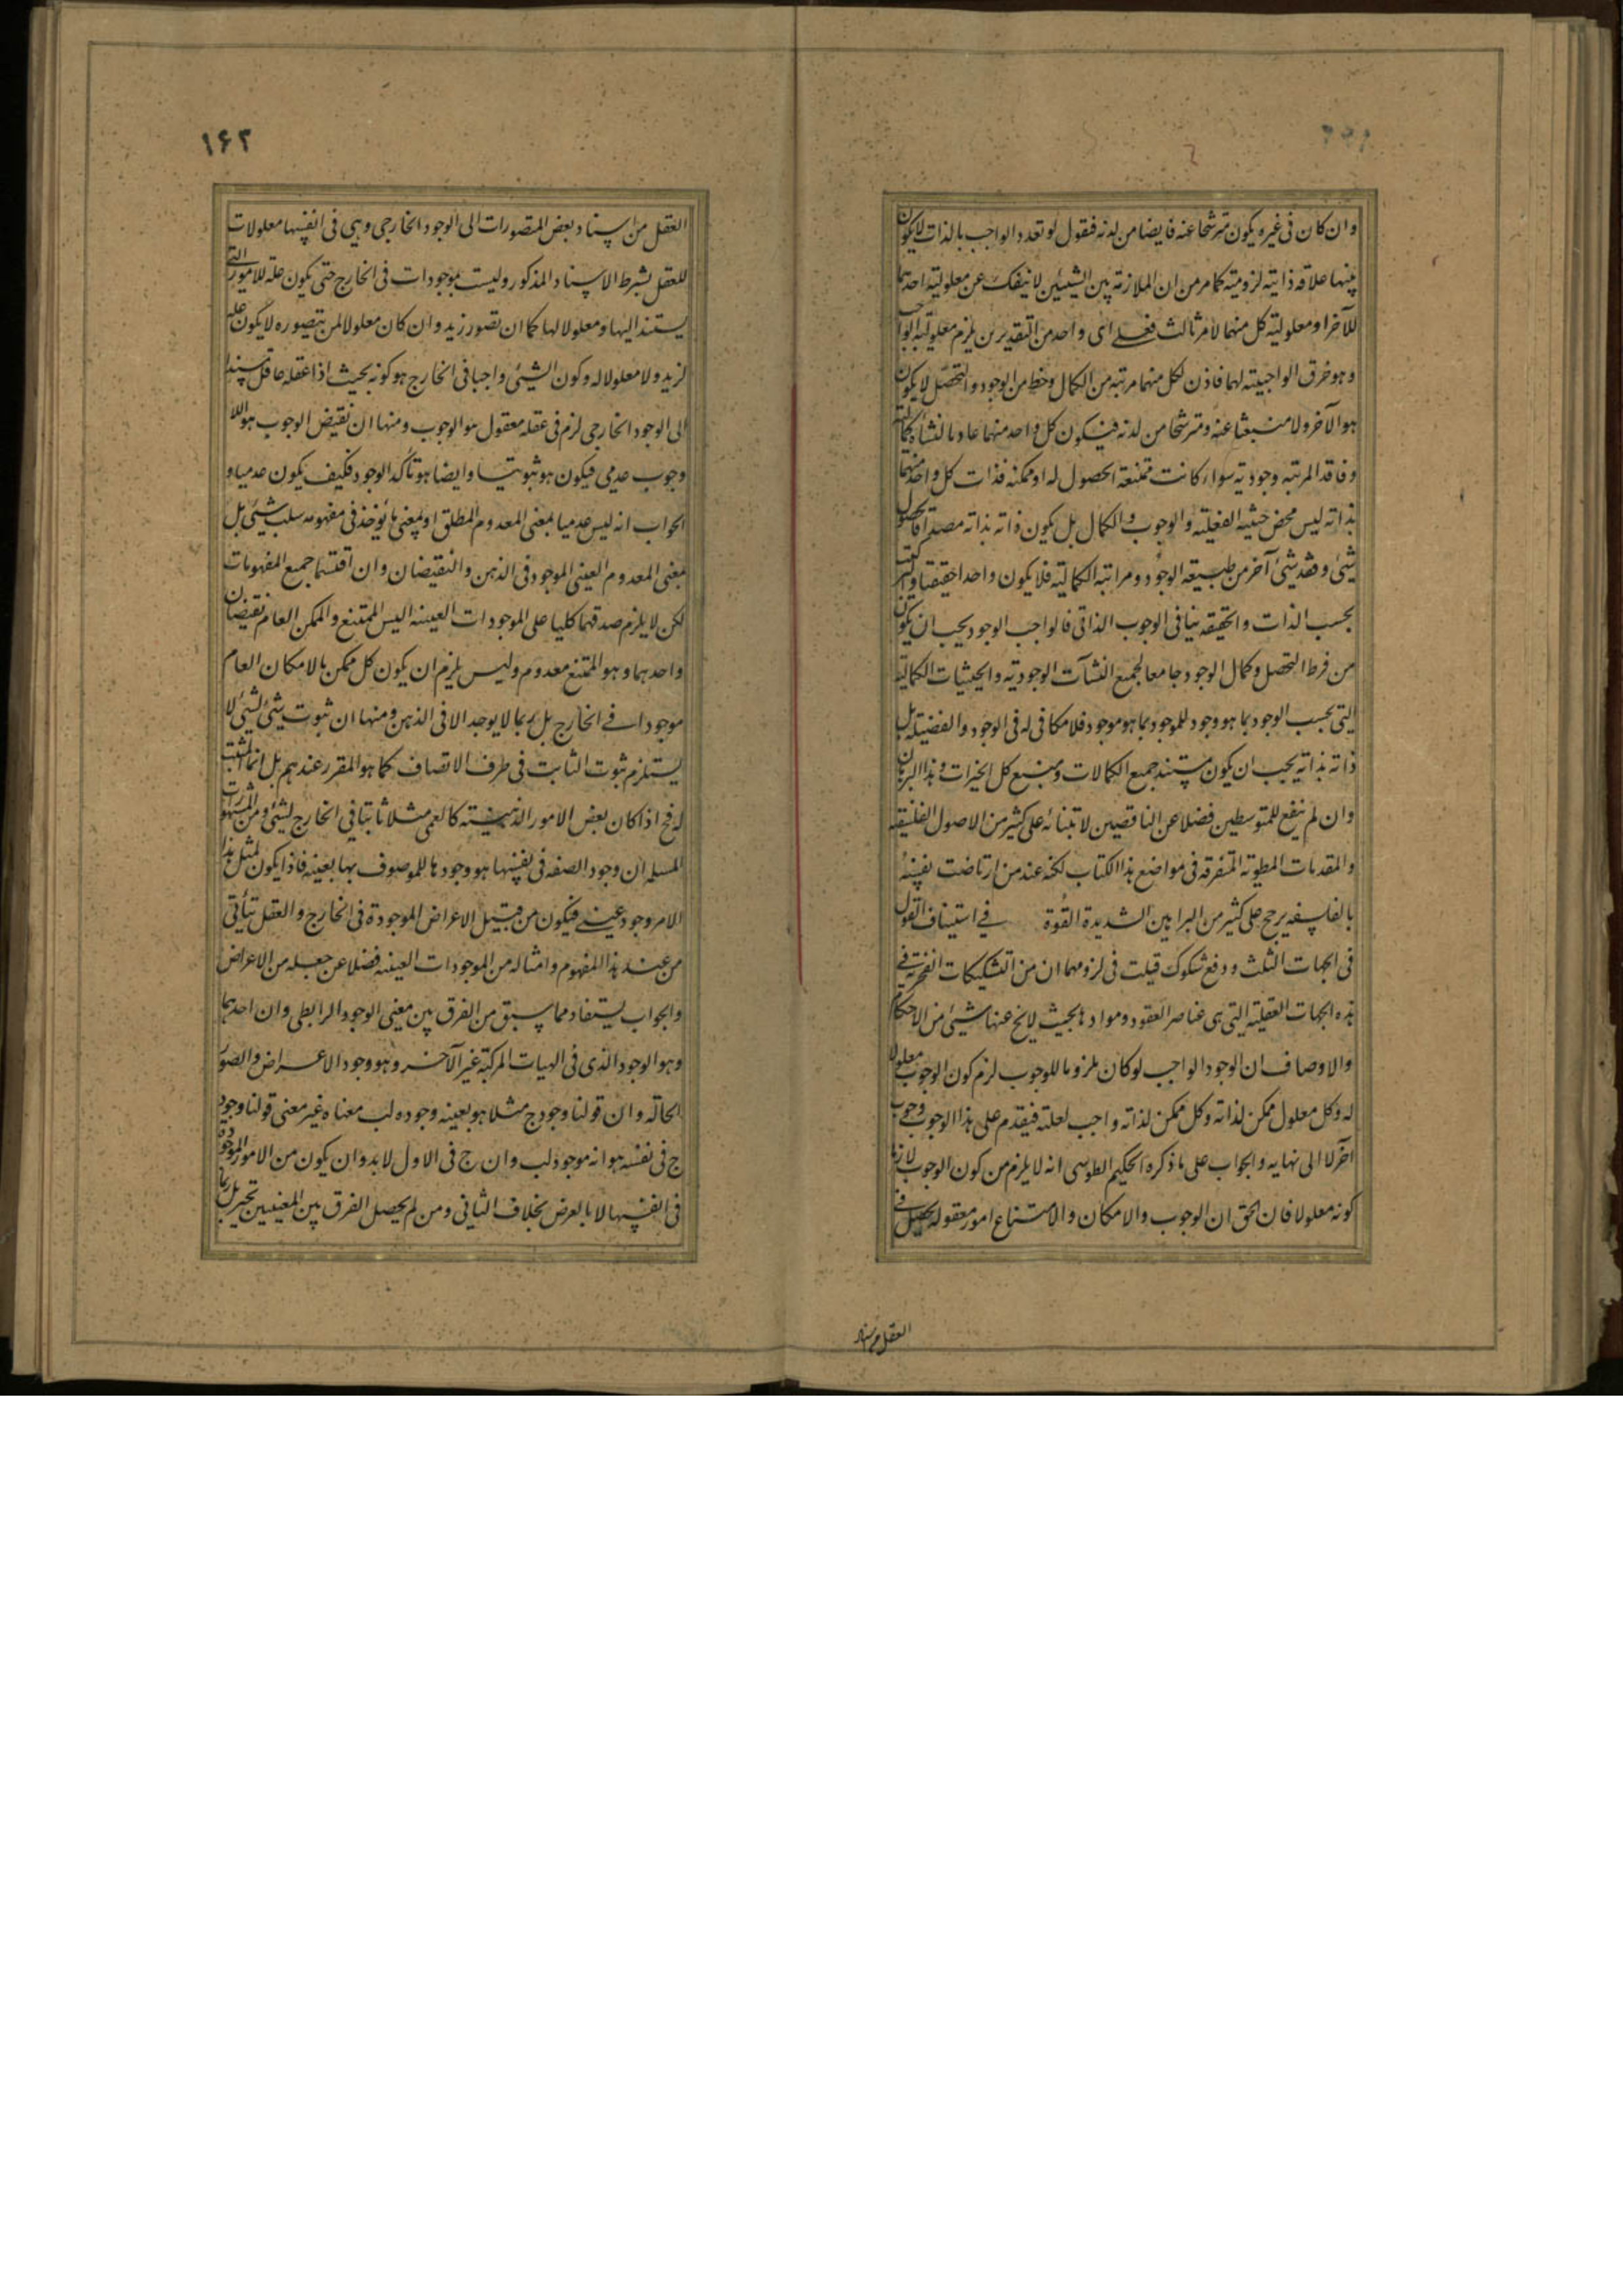 وان كان فى غيره يكون مترشحا عنه فايضا من لدنه فنقول لو تعدد الواجب بالذات لا يكون
بينهما علاقه ذاتيه لزوميته كما مر من ان الملازمة بين الشيئين لا ينفك عن معلولية احدهما
للآخر او معلولية كل منهما لامر ثالث فعلى اى واحد من التقديرين يلزم معلولية الواجب
وهو خرق الواجبيته لهما فاذن لكل منهما مرتبه من الكمال وحظ من الوجود والتحصل لا يكون
هو الآخر ولا منبعثا عنه ومترشحا من لدنه فيكون كل واحد منهما عاد ما لنشاة كمالية
وفاقد المرتبه وجوديه سواء كانت ممتنعة الحصول له او ممكنه فذات كل واحد منهما
بذاته ليس محض حيثيه الفعليته والوجوب والكمال بل يكون ذاته بذاته مصداقا لحصول
شيئ وفقد شيئ آخر من طبيعه الوجود ومراتبه الكماليته فلا يكون واحدا حقيقيا والتركيب
بحسب الذات والحقيقه ينافى الوجوب الذاتى فالواجب الوجود يجب ان يكون
من فرط التحصل وكمال الوجود جامعا لجميع النشآت الوجوديته والحيثيات الكماليته
التى بحسب الوجود بما هو وجود للموجود بما هو موجود فلا مكافى له فى الوجود والفضيلته بل
ذاته بذاته يجب ان يكون مستند جميع الكمالات ومنبع كل الخيرات وهذا البرهان
وان لم ينفع للمتوسطين فضلا عن الناقصين لابتنائه على كثير من الاصول الفلسفيه
والمقدمات المطويه المتفرقه فى مواضع هذا الكتاب لكنه عند من ارتاضت نفسه
بالفلسفه يرجح على كثير من البراهين الشديدة القوة فى استيناف القول
فى الجهات الثلث ودفع شكوك قيلت فى لزومها ان من التشكيكات الفخرية فى
هذه الجهات العقليته التى هى عناصر العقود وموادها بحيث لا يخ عنها شيئ من الاحكام
والاوصاف ان الوجود الواجب لو كان ملزوما للوجوب لزم كون الوجوب معلولا
له وكل معلول ممكن لذاته وكل ممكن لذاته واجب لعلته فيقدم على هذا الوجوب وجوب
آخر لا الى نهايه والجواب على ما ذكره الحكيم الطوسى انه لا يلزم من كون الوجوب لازما
كونه معلولا فان الحق ان الوجوب والامكان والامتناع امور معقوله يحصل فى
العقل من اسناد
١۶٢
العقل من اسناد بعض المتصورات الى الوجود الخارجى وهى فى انفسها معلولات
للعقل بشرط الاسناد المذكور وليست بموجودات فى الخارج حتى يكون علة للامور التى
يستند اليها او معلولا لها كما ان تصور زيد وان كان معلولا لمن يتصوره لا يكون علة
لزيد ولا معلولا له وكون الشيئ واجبا فى الخارج هو كونه بحيث اذا عقله عاقل مسندا
الى الوجود الخارجى لزم فى عقله معقول هو الوجوب ومنها ان نقيض الوجوب هو اللا
وجوب عدمى فيكون هو ثبوتيا وايضا هو تأكد الوجود فكيف يكون عدميا و
الجواب انه ليس عدميا بمعنى المعدوم المطلق او بمعنى ما يؤخذ فى مفهومه سلب شيئ بل
بمعنى المعدوم العينى الموجود فى الذهن والنقيضان وان اقتسما جميع المفهومات
لكن لا يلزم صدقهما كليا على الموجودات العينيه اليس الممتنع والممكن العام نقيضان
واحدهما وهو الممتنع معدوم وليس يلزم ان يكون كل ممكن بالامكان العام
موجودا فى الخارج بل ربما لا يوجد الا فى الذهن ومنها ان ثبوت شيئ لشيئ لا
يستلزم ثبوت الثابت فى ظرف الاتصاف كما هو المقرر عندهم بل انما المثبت
له فح اذا كان بعض الامور الذهنيته كالعمى مثلا ثابتا فى الخارج لشيئ ومن المشهورات
المسلمه ان وجود الصفه فى نفسها هو وجودها للموصوف بها بعينه فاذا يكون لمثل هذا
الامر وجود عينى فيكون من قبيل الاعراض الموجودة فى الخارج والعقل يتأتى
من عند هذا المفهوم وامثاله من الموجودات العينيه فضلا عن جعله من الاعراض
والجواب يستفاد مما سبق من الفرق بين معنى الوجود الرابطى وان احدهما
وهو الوجود الذى فى الهيات المركبته غير الآخر وهو وجود الاعراض والصور
الحاله وان قولنا وجود ج مثلا هو بعينه وجوده لب معناه غير معنى قولنا وجود
ج فى نفسه هو انه موجود لب وان ج فى الاول لا بد وان يكون من الامور الموجودة
فى انفسها لا بالعرض بخلاف الثانى ومن لم يحصل الفرق بين المعنيين تحير بل ربما